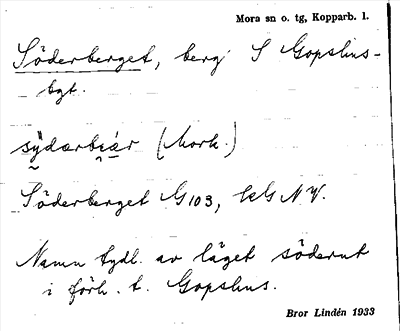 Mora sn o. tg, Kopparb. l.
Söderberget, berg S Gopshus-
bgt.
sydærbɛ́ár (Mork.)
Söderberget G 103, kG NV.
Namn tydl. av läget söderut
i förh. t. Gopshus.
Bror Lindén 1933